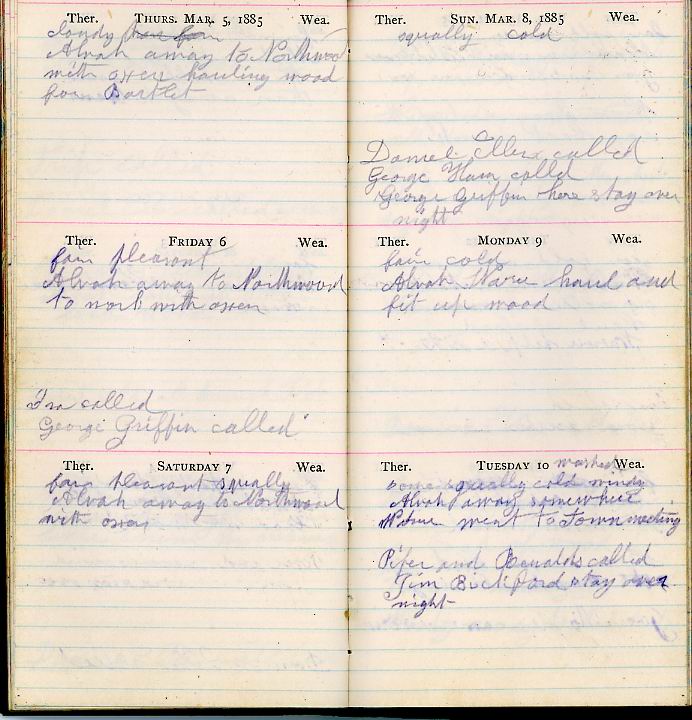 Ther. THURS. MAR. 5, 1885 Wea.
clondy
Alvah away to Northwood
with oxen hauling wood
for Bartlet
Ther. FRIDAY 6 Wea.
fair pleasant
Alvah away to Northwood
to work with oxen
Ira called
George Griffin called
Ther. SATURDAY 7 Wea.
fair pleasant squally
Alvah away to Northwood
with oxen
Ther. SUN. MAR. 8, 1885 Wea.
squally cold
Daniel called
George Ham calld
George Griffin here stay over
night
Ther. MONDAY 9 Wea.
fair cold
Alvah haul and
fit up wood
Ther. TUESDAY 10 washed Wea.
some squally cold windy
Alvah away somewhere
went to Town meeting
Pifer and Renalds called
Jim Bickford stay over
night